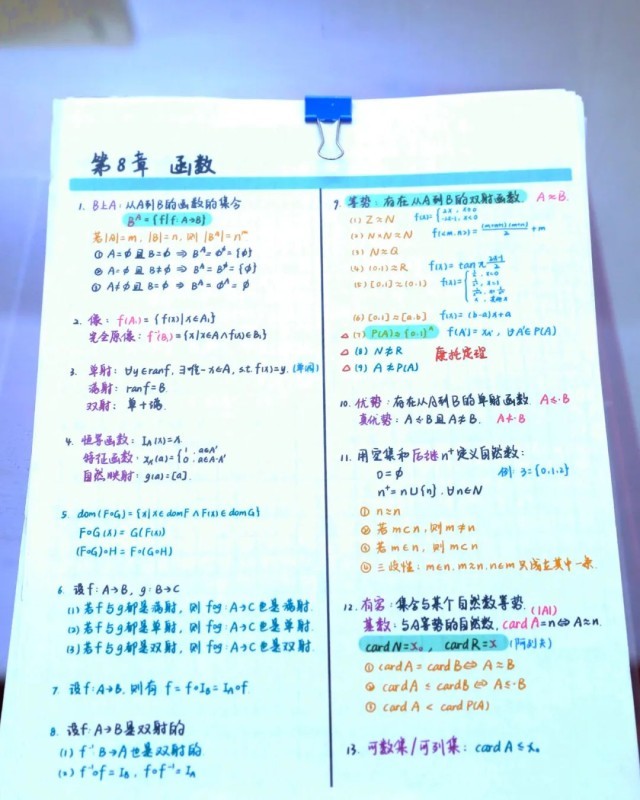 第8章 函数
1. B上A: 从A到B的函数的集合
Bᴬ = {f|f: A→B}
若|A|=m, |B|=n, 则 |Bᴬ|=nᵐ
① A=∅ 且 B=∅ ⇒ Bᴬ=∅^∅={∅}
② A=∅ 且 B≠∅ ⇒ Bᴬ=B^∅={∅}
③ A≠∅ 且 B=∅ ⇒ Bᴬ=∅ᴬ=∅
2. 像: f(A₁)={f(x)|x∈A₁}
完全原像: f⁻¹(B₁)={x|x∈A∧f(x)∈B₁}
3. 单射: ∀y∈ranf, ∃唯一x∈A, s.t. f(x)=y.
满射: ranf=B
双射: 单+满.
4. 恒等函数: I_A(x)=
特征函数:
自然映射: g(a)=[a].
5. dom(F∘G)={x|x∈domF∧F(x)∈domG}
F∘G(x)=G(F(x))
(F∘G)∘H=F∘(G∘H)
6. 设f: A→B, g: B→C
(1) 若f与g都是满射, 则 f∘g: A→C也是满射.
(2) 若f与g都是单射, 则 f∘g: A→C也是单射.
(3) 若f与g都是双射, 则 f∘g: A→C也是双射.
7. 设f: A→B, 则有 f=f∘I_B=I_A∘f.
8. 设f: A→B是双射的
(1) f⁻¹: B→A也是双射的.
(2) f⁻¹∘f=I_B, f∘f⁻¹=I_A
9. 等势: 存在从A到B的双射函数 A≈B.
(1) Z≈N
(2) N×N≈N f(<m,n>)=(m+n+1)(m+n)/2+m
(3) N≈Q
(4) (0,1)≈R
(5) [0,1]≈(0,1)
(6) [0,1]≈[a,b] f(x)=(b-a)x+a
△ (7) P(A)≈{0,1}ᴬ
△ (8) N≉R 康托定理
△ (9) A≉P(A)
10. 优势: 存在从A到B的单射函数 A≼·B
真优势: A≼·B且A≉B. A≺·B
11. 用空集和后继n⁺定义自然数:
0=∅ 例: 3={0,1,2}
n⁺=n∪{n}, ∀n∈N
① n≈n
② 若m⊂n, 则m≉n
③ 若m∈n, 则m⊂n
④ 三歧性: m∈n, m≈n, n∈m 只成立其中一条.
12. 有穷: 集合与某个自然数等势. (|A|)
基数: 与A等势的自然数, cardA=n⇔A≈n.
cardN=ℵ₀, cardR=ℵ (阿列夫)
① cardA=cardB⇔A≈B
② cardA≤cardB⇔A≼·B
③ cardA<cardP(A)
13. 可数集/可列集: cardA≤ℵ₀